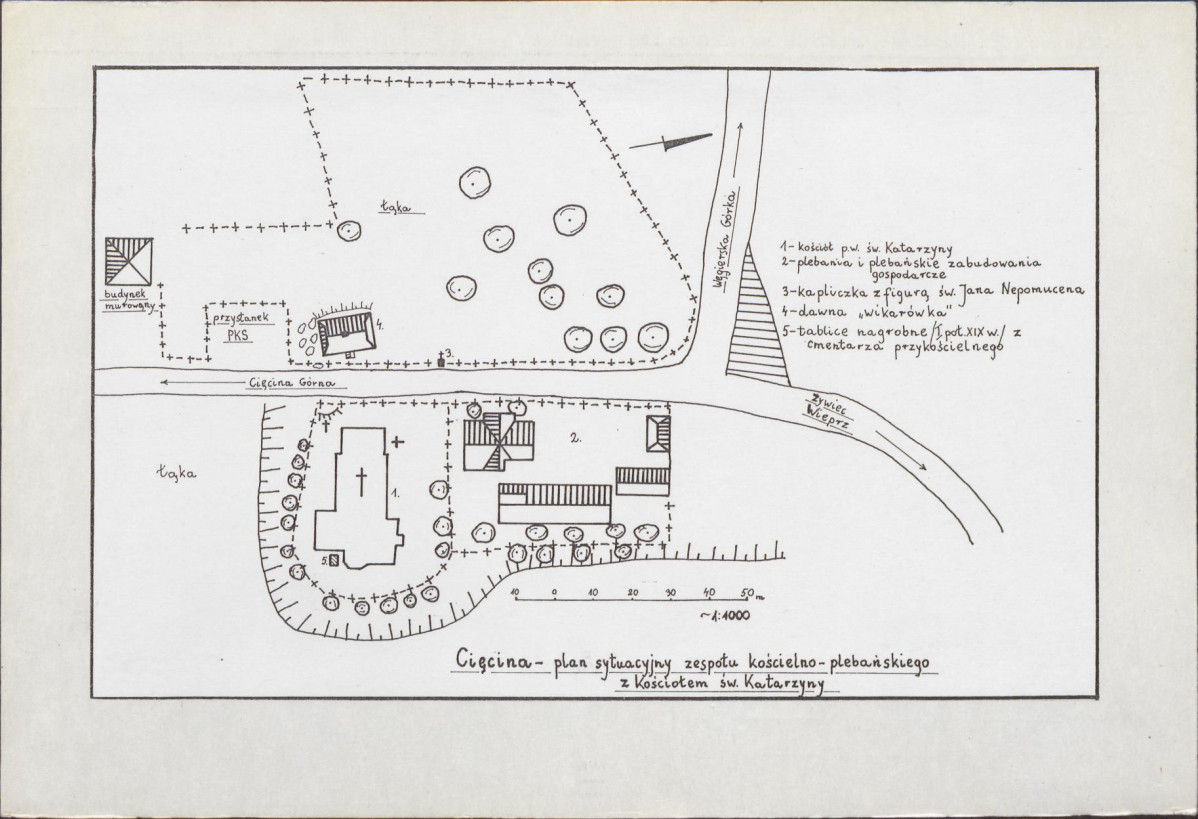 łąka
Węgierska Górka
1-kościół p.w. św. Katarzyny
2-plebania i plebańskie zabudowania
gospodarcze
3-kapliczka z figurą św. Jana Nepomucena
4-dawna „wikarówka"
5-tablice nagrobne /I poł. XIX w./ z
cmentarza przykościelnego
budynek
murowany
przystanek
PKS
4.
3.
Cięcina Górna
Żywiec
Wieprz
2.
łąka
1.
5.
10 0 10 20 30 40 50 m
~1:1000
Cięcina - plan sytuacyjny zespołu kościelno-plebańskiego
z Kościołem św. Katarzyny